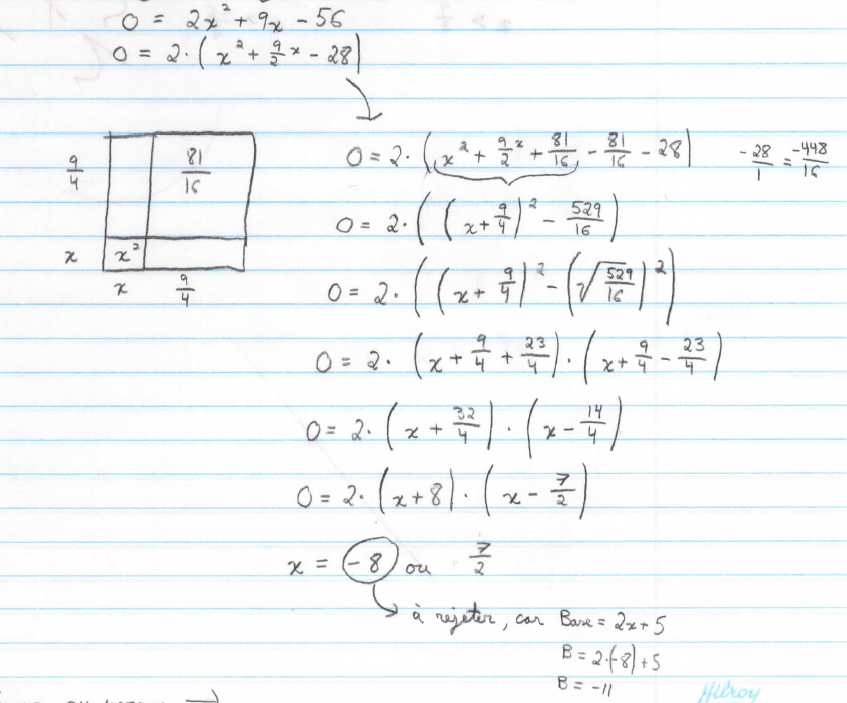 0 = 2x² + 9x - 56
0 = 2·(x² + 9/2 x - 28)
0 = 2·(x² + 9/2 x + 81/16 - 81/16 - 28)
-28/1 = -448/16
9/4
81/16
x
x²
x
9/4
0 = 2·((x + 9/4)² - 529/16)
0 = 2·((x + 9/4)² - (√529/16)²)
0 = 2·(x + 9/4 + 23/4)·(x + 9/4 - 23/4)
0 = 2·(x + 32/4)·(x - 14/4)
0 = 2·(x + 8)·(x - 7/2)
x = -8 ou 7/2
à rejeter, car Base = 2x + 5
B = 2·(-8) + 5
B = -11
Hilroy